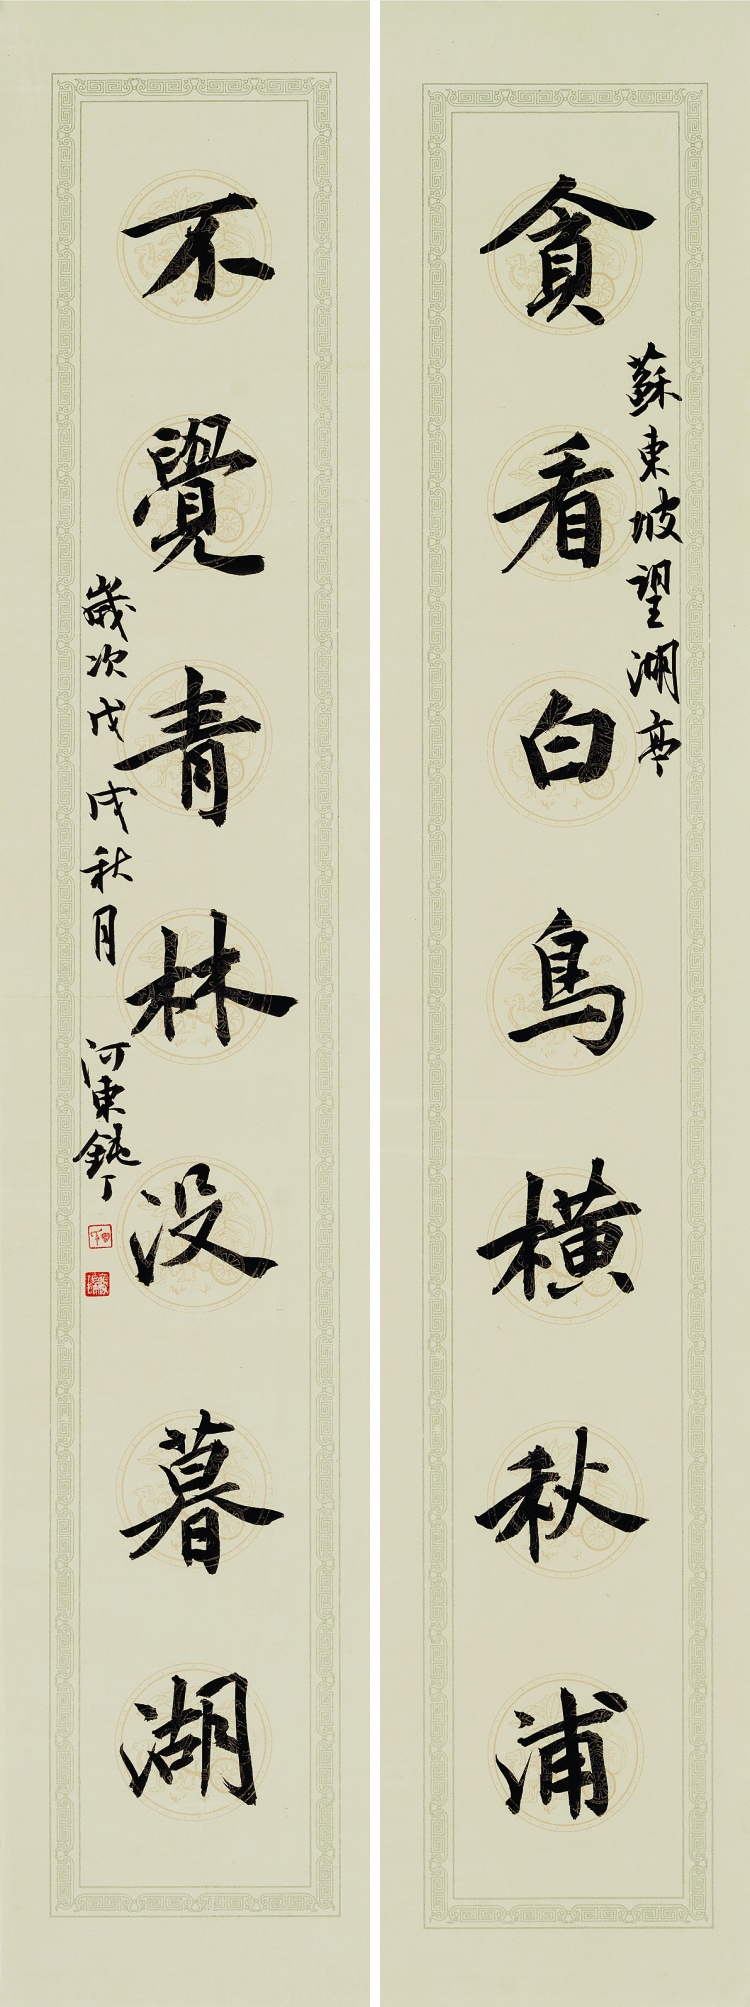 貪看白鳥橫秋浦
蘇東坡望湖亭
不覺青林没暮湖
歲次戊戌秋月
河東鈍丁